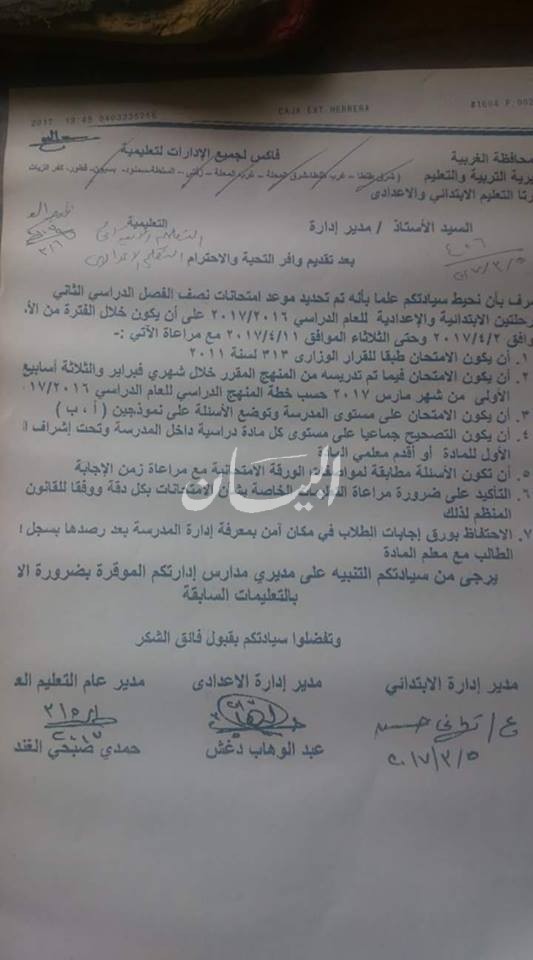 2017 13:45 0403335256 CAJA EXT HERRERA 81604 P.002
محافظة الغربية
فاكس لجميع الإدارات لتعليمية
يرية التربية والتعليم
( شرق طنطا – غرب طنطا – شرق المحلة – غرب المحلة – زفتى – السنطة – سمنود – بسيون – قطور – كفر الزيات
رتا التعليم الابتدائي والاعدادى
السيد الأستاذ / مدير إدارة التعليمية
بعد تقديم وافر التحية والاحترام ،
رف بأن نحيط سيادتكم علما بأنه تم تحديد موعد امتحانات نصف الفصل الدراسي الثاني
رحلتين الابتدائية والإعدادية للعام الدراسي ٢٠١٧/٢٠١٦ على أن يكون خلال الفترة من الأ
وافق ٢٠١٧/٤/٢ وحتى الثلاثاء الموافق ٢٠١٧/٤/١١ مع مراعاة الآتي :-
١. أن يكون الامتحان طبقا للقرار الوزارى ٣١٣ لسنة ٢٠١١
٢. أن يكون الامتحان فيما تم تدريسه من المنهج المقرر خلال شهري فبراير والثلاثة أسابيع
الأولى من شهر مارس ٢٠١٧ حسب خطة المنهج الدراسي للعام الدراسي ١٧/٢٠١٦
٣. أن يكون الامتحان على مستوى المدرسة وتوضع الأسئلة على نموذجين ( أ ، ب )
٤. أن يكون التصحيح جماعيا على مستوى كل مادة دراسية داخل المدرسة وتحت إشراف ا
الأول للمادة أو أقدم معلمي المادة
٥. أن تكون الأسئلة مطابقة لمواصفات الورقة الامتحانية مع مراعاة زمن الإجابة
٦. التأكيد على ضرورة مراعاة التعليمات الخاصة بشأن الامتحانات بكل دقة ووفقا للقانون
المنظم لذلك
٧. الاحتفاظ بورق إجابات الطلاب في مكان آمن بمعرفة إدارة المدرسة بعد رصدها بسجل
الطالب مع معلم المادة
يرجى من سيادتكم التنبيه على مديري مدارس إدارتكم الموقرة بضرورة الا
بالتعليمات السابقة
وتفضلوا سيادتكم بقبول فائق الشكر
مدير إدارة الابتدائي مدير إدارة الاعدادى مدير عام التعليم الع
٢٠١٧/٣/٥
عبد الوهاب دغش حمدي صبحي الغند
البيان